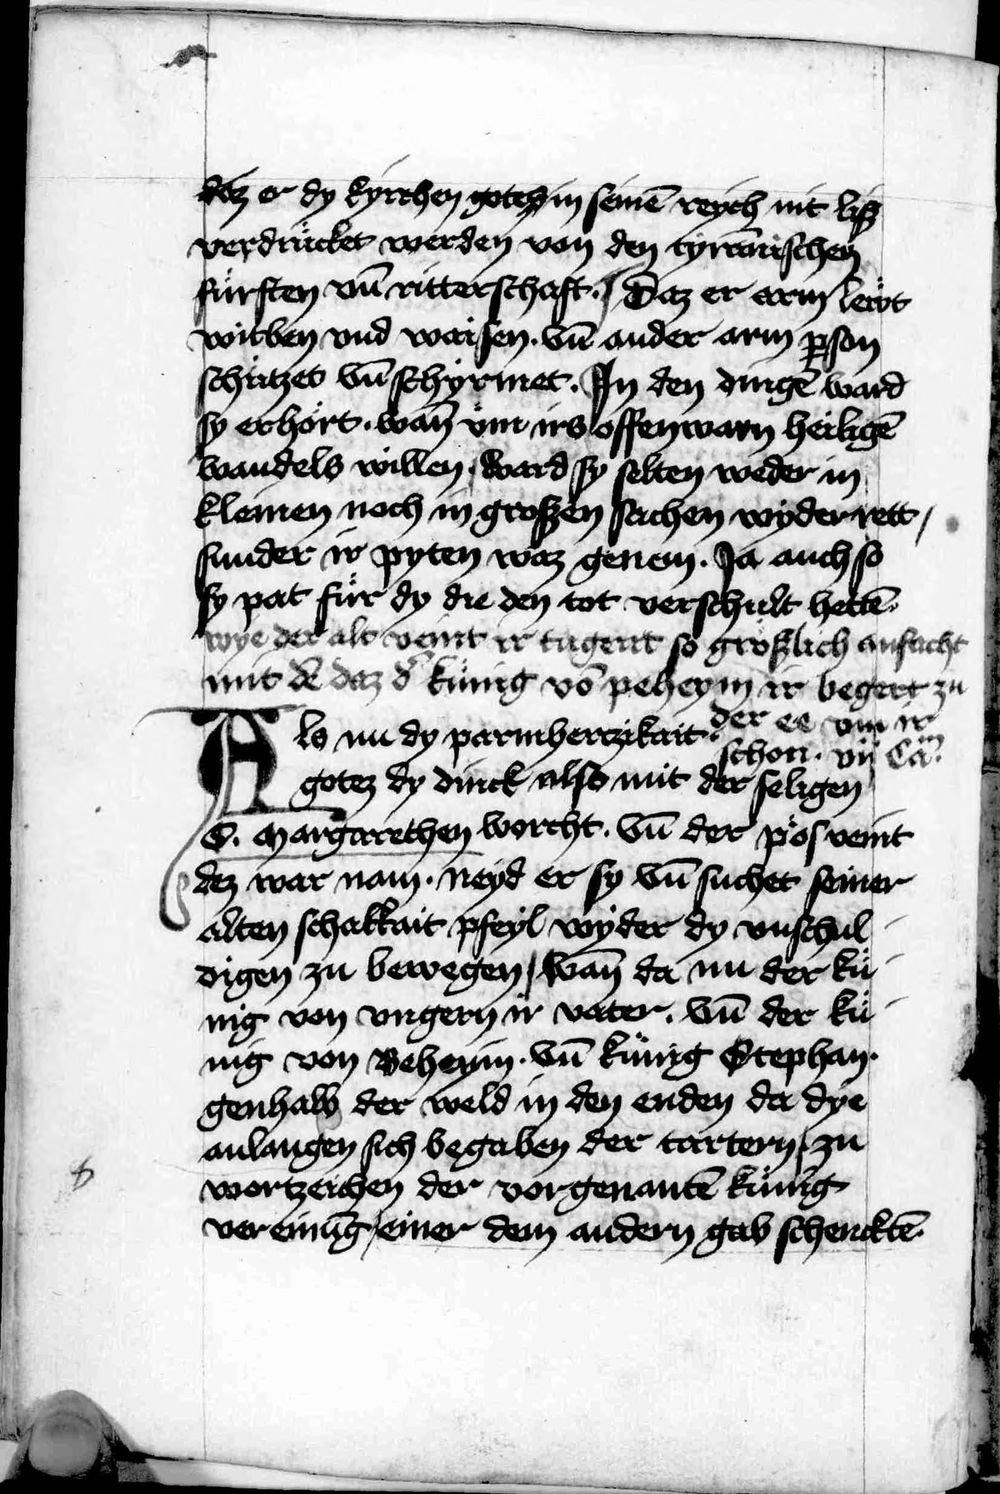 daz er dy kyrchen gotes in seinē reych nit liß
verdrücket werden von den tyrannischen
fürsten vn̄ ritterschaft. Daz er arm lewt
witben vnd waisen. vn̄ ander arm ꝑson
schützet vn̄ schyrmet. In den dingē ward
sy erhört. wan̄ vm irs offenwarn heiligē
wandels willen. Ward sy selten weder in
kleinen noch in großen sachen wyder rett /
sunder ir pyten waz genem. Ja auch so
sy pat für dy die den tot verschult hettē.
wye der alt veint ir tugent so größlich anfacht
mit dē daz d̄ künig vō peheym ir begert zu
der ee vm ir
schon. vij Cam̄.
Als nu dy parmherczikait
gotez dy dinck also mit der seligen
S. Margarethen worcht. vn̄ der pös veint
dez war nam. neyd er sy vn̄ suchet seiner
alten schalkait pfeyl wyder dy vnschul
digen zu bewegen / wan̄ da nu der kü
nig von vngern ir vater. vn̄ der kü
nig von Beheym. vn̄ künig Stephan.
genhalb der weld in den enden da dye
anlangen sich begaben der tartern / zu
wortzeichen der vorgenantē künig
vereinūg / einer dem andern gab schencktē.
8